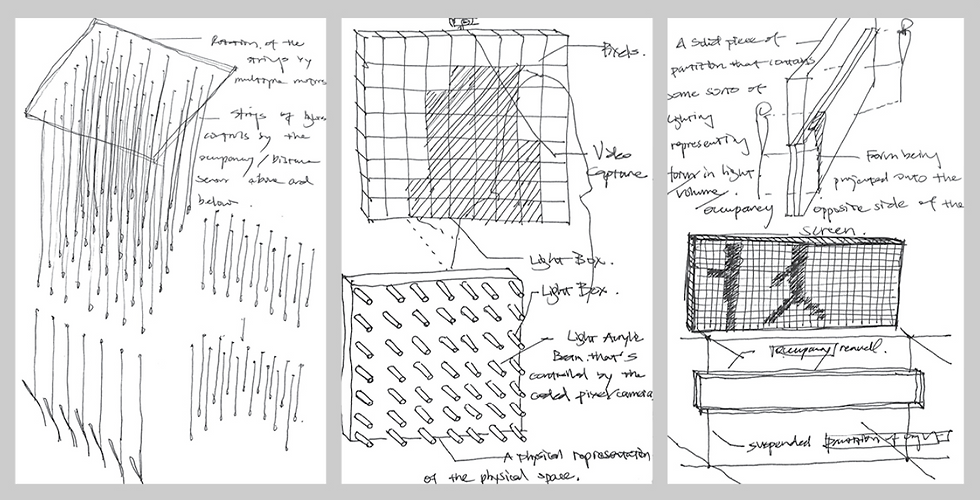 Rotation of the
strings by
multiple motors
strings of
controls by the
occupancy / Distance
sensor above and
below
Pixels.
Video
Capture
Light Box.
Light Box.
Light Acrylic
Beam that's
controlled by the
coded pixel camera
A physical representation
of the physical space.
A solid piece of
partition that contains
some sorts of
lighting
representing
form in light
volume.
occupancy
Form being
projected onto the
opposite side of the
screen.
occupancy
suspended